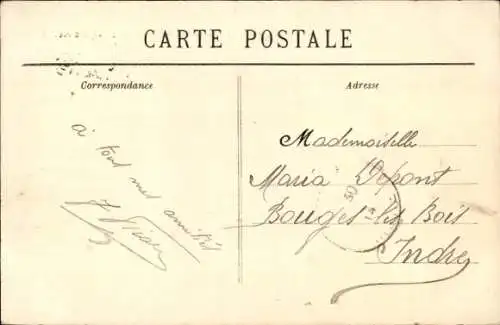 CARTE POSTALE
Correspondance
à tous mes amitiés
Adresse
Mademoiselle
Maria Depont
Bouges les Bois
Indre